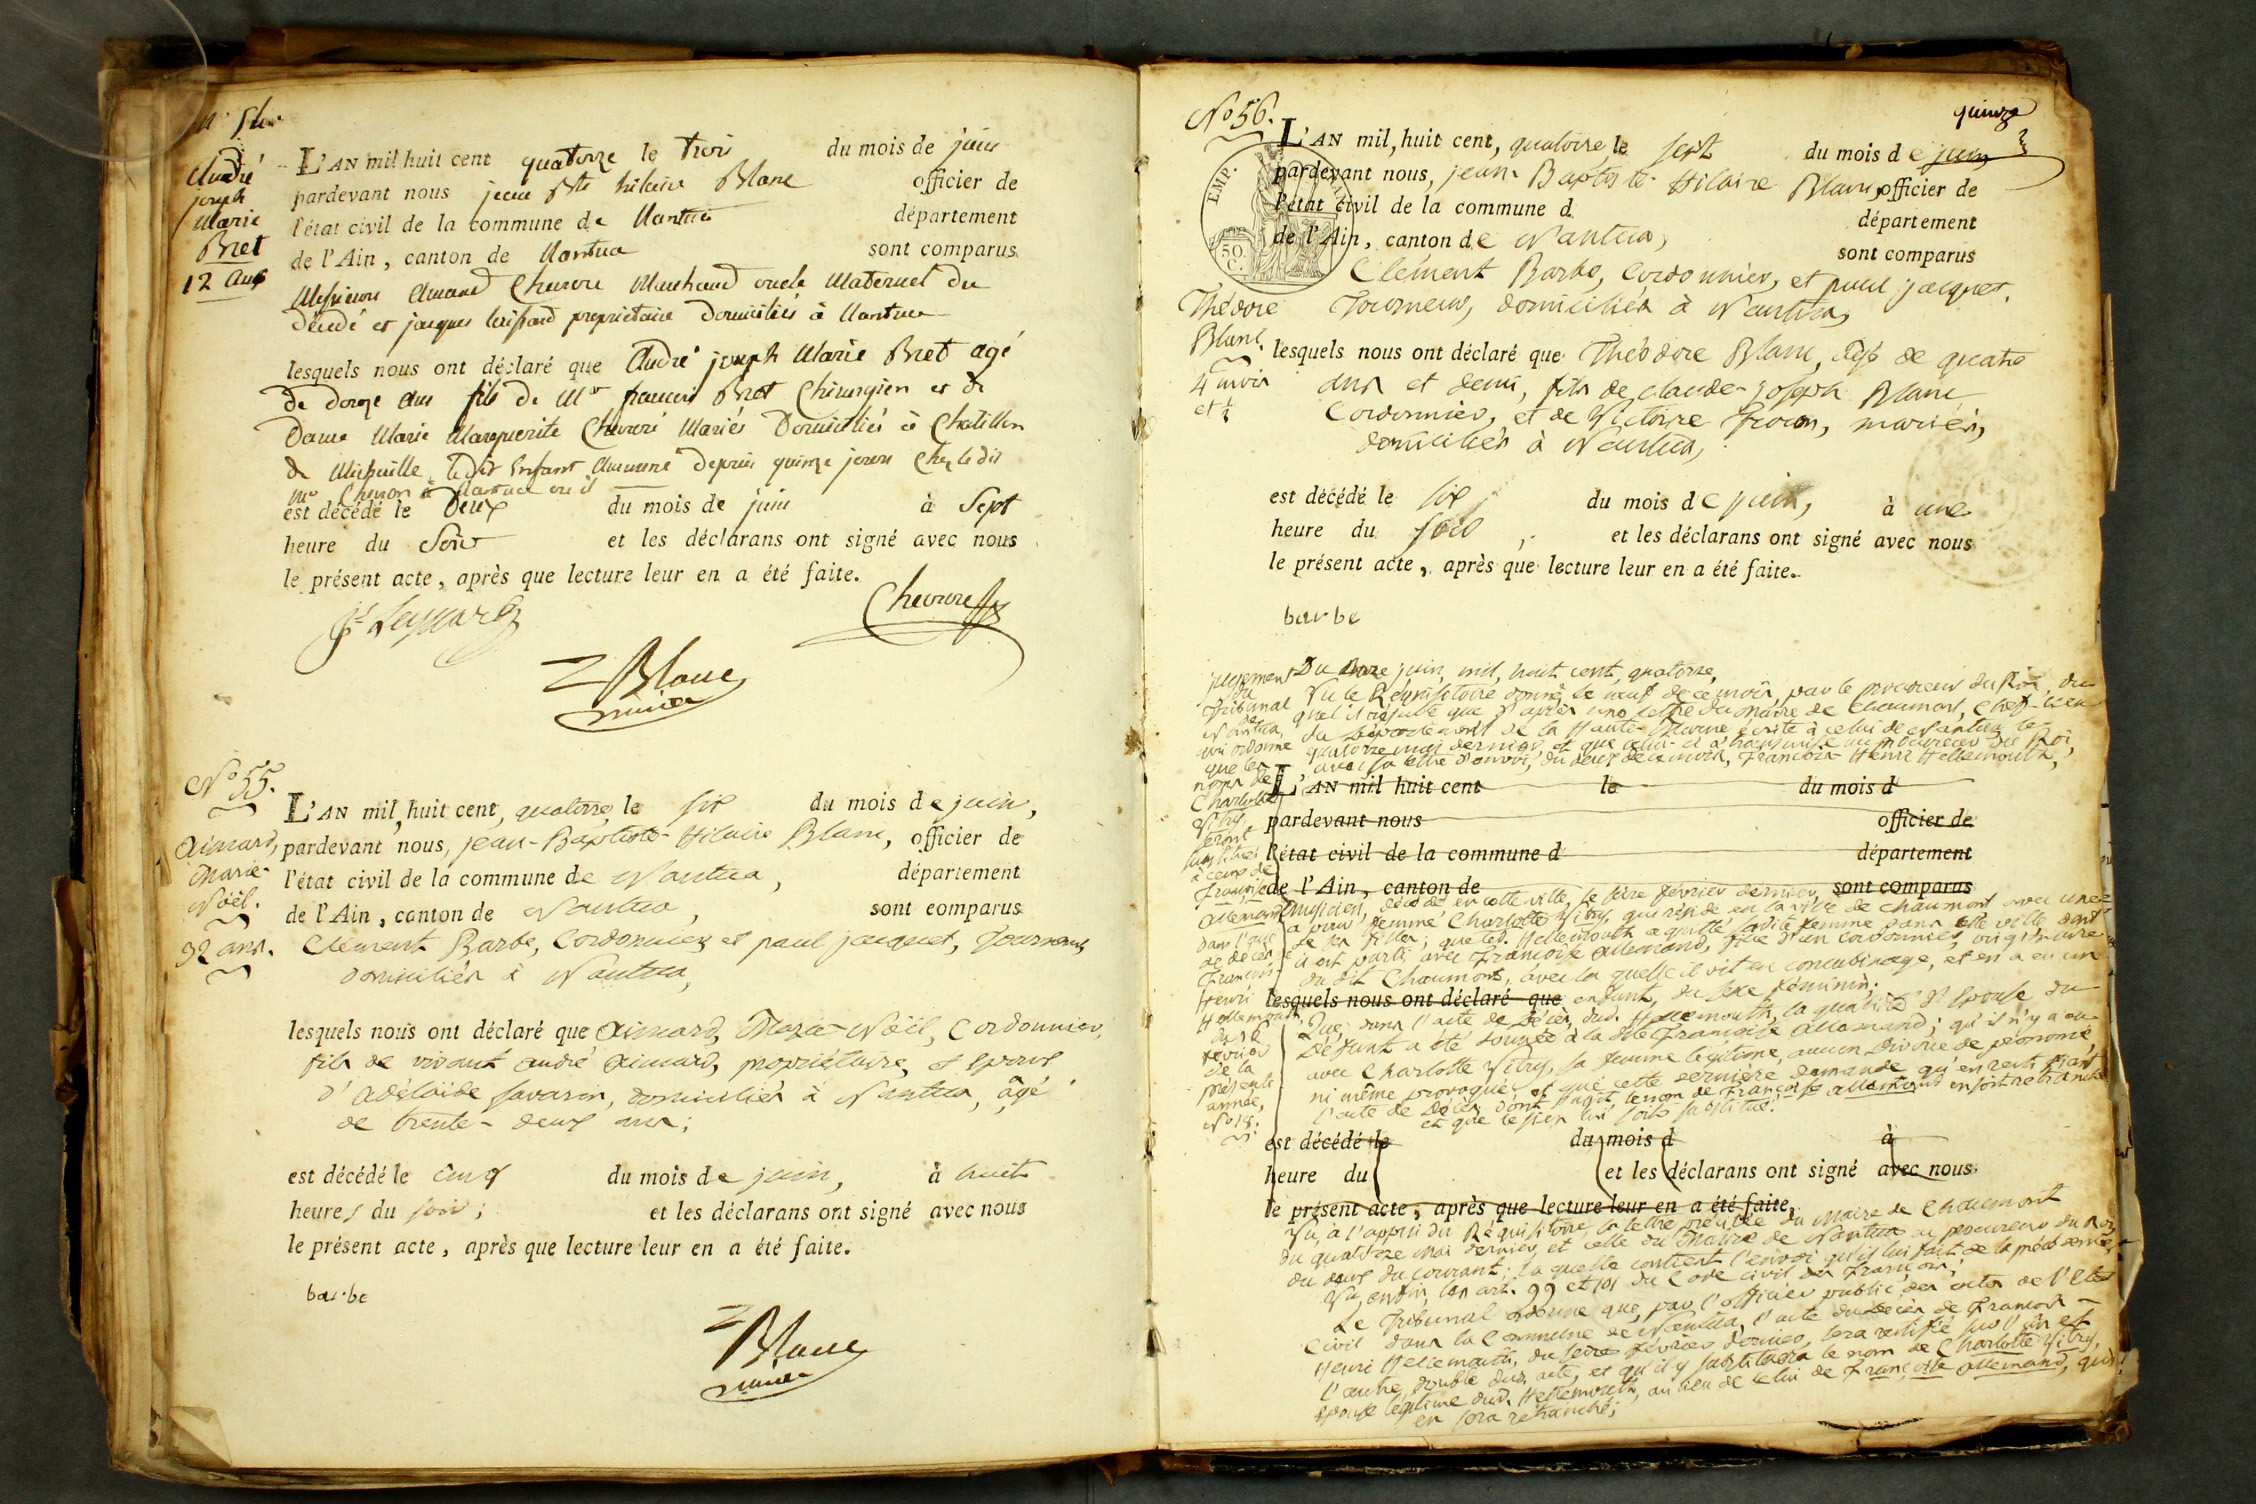 André
joseph
Marie
Bret
12 ans
L'AN mil huit cent quatorze le trois du mois de juin
pardevant nous jean Bte hilaire Blanc officier de
l'état civil de la commune de Nantua département
de l'Ain, canton de Nantua sont comparus
Messieurs Amand Chevron Marchand oncle Maternel du
décédé et jacques propriétaire domiciliés à Nantua
lesquels nous ont déclaré que André joseph Marie Bret agé
de douze ans fils de Mr françois Bret Chirurgien et de
Dame Marie Marguerite Mariés Domiciliés à Chatillon
de Michaille ledit Enfant depuis quinze jours chez ledit
Mr à Nantua où il
est décédé le Deux du mois de juin à Sept
heure du Soir et les déclarans ont signé avec nous
le présent acte, après que lecture leur en a été faite.
Blanc
maire
No 55.
Aimard,
Marie-
Noël.
32 ans.
L'AN mil, huit cent, quatorze, le six du mois de juin,
pardevant nous, jean-Baptiste-Hilaire Blanc, officier de
l'état civil de la commune de Nantua, département
de l'Ain, canton de Nantua, sont comparus
Clément Barbe, Cordonnier, et paul jacquet, Tourneur,
domiciliés à Nantua,
lesquels nous ont déclaré que Aimard, Marie-Noël, Cordonnier,
fils de vivant andré Aimard, propriétaire, et époux
d'Adélaïde savarin, domiciliés à Nantua, âgé
de trente-deux ans;
est décédé le cinq du mois de juin, à huit
heures du soir; et les déclarans ont signé avec nous
le présent acte, après que lecture leur en a été faite.
barbe
Blanc
maire
quinze
No 56.
Théodore
Blanc.
4 mois
et ½
EMP.
50
C.
L'AN mil, huit cent, quatorze, le sept du mois de juin
pardevant nous, jean-Baptiste-Hilaire Blanc, officier de
l'état civil de la commune d département
de l'Ain, canton de Nantua, sont comparus
Clément Barbe, Cordonnier, et paul jacquet,
Tourneur, domiciliés à Nantua,
lesquels nous ont déclaré que Théodore Blanc, âgé de quatre
ans et demi, fils de claude-joseph Blanc
Cordonnier, et de Victoire mariés,
domiciliés à Nantua,
est décédé le six du mois de juin, à une
heure du soir, et les déclarans ont signé avec nous
le présent acte, après que lecture leur en a été faite.
barbe
jugement
du
Tribunal
de
Nantua,
qui ordonne
que les
noms de
Charlotte
Vitry,
seront
substitués
à ceux de
Françoise
Allemand
dans l'acte
de décès de
François-
Henri
Hellemouth,
du 16
février
de la
présente
année,
No 18.
Du onze juin, mil, huit cent, quatorze,
Vu le Réquisitoire donné le neuf de ce mois, par le procureur du Roi, du
quel il résulte que d'après une lettre du Maire de Chaumont, Chef-lieu
du Département de la Haute-Marne, écrite à celui de Nantua le
quatorze mai dernier, et que celui-ci a transmise au procureur du Roi,
avec sa lettre d'envoi, du deux de ce mois, François-Henri Hellemouth,
L'AN mil huit cent le du mois d
pardevant nous officier de
l'état civil de la commune d département
de l'Ain, canton de sont comparus
musicien, décédé en cette ville, le seize février dernier,
a pour femme Charlotte Vitry, qui réside en la ville de Chaumont avec une
de ses filles; que led. Hellemouth a quitté ladite femme dans cette ville dont
il est parti avec Françoise Allemand, fille d'un cordonnier, originaire
du dit Chaumont, avec la quelle il vit en concubinage, et en a eu un
lesquels nous ont déclaré que enfant, du sexe féminin;
Que, dans l'acte de Décès, dud. Hellemouth, la qualité d'Epouse du
Défunt a été donnée à la dite Françoise Allemand; qu'il n'y a eu
avec Charlotte Vitry, sa femme légitime, aucun Divorce de prononcé,
ni même provoqué, et que cette dernière demande qu'en rectifiant
l'acte de Décès dont s'agit, le nom de Françoise Allemand en soit retranché
et que le sien lui soit substitué.
est décédé le du mois d à
heure du et les déclarans ont signé avec nous
le présent acte, après que lecture leur en a été faite.
Vu, à l'appui du Réquisitoire, la lettre précitée du Maire de Chaumont
du quatorze Mai dernier, et celle du Maire de Nantua au procureur du Roi,
du deux du courant; la quelle contient l'envoi qu'il lui fait de la précédente,
Vu, enfin, les art. 99 et 101 du Code civil des Français;
Le Tribunal ordonne que, par l'officier public des actes de l'Etat
Civil dans la Commune de Nantua, l'acte du Décès de François-
Henri Hellemouth, du seize février dernier, sera rectifié sur l'un et
l'autre double dud. acte, et qu'il y substituera le nom de Charlotte Vitry,
épouse légitime dud. Hellemouth, au lieu de celui de Françoise Allemand, qui
en sera retranché;